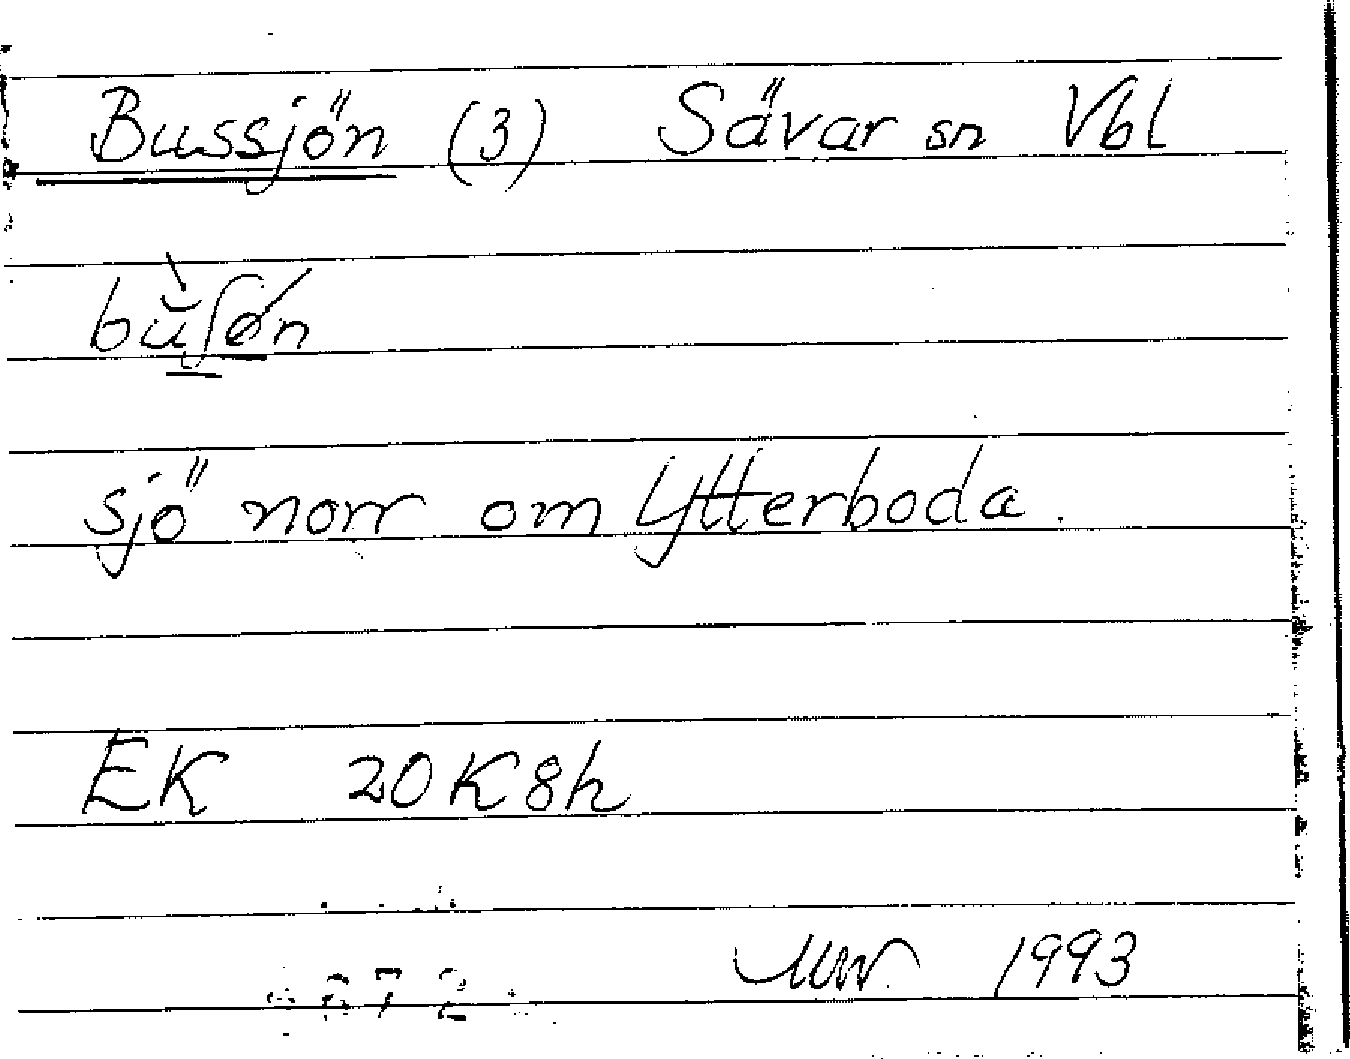 Bussjön (3) Sävar sn Vbl
sjö norr om Ytterboda.
EK 20K8h
1993